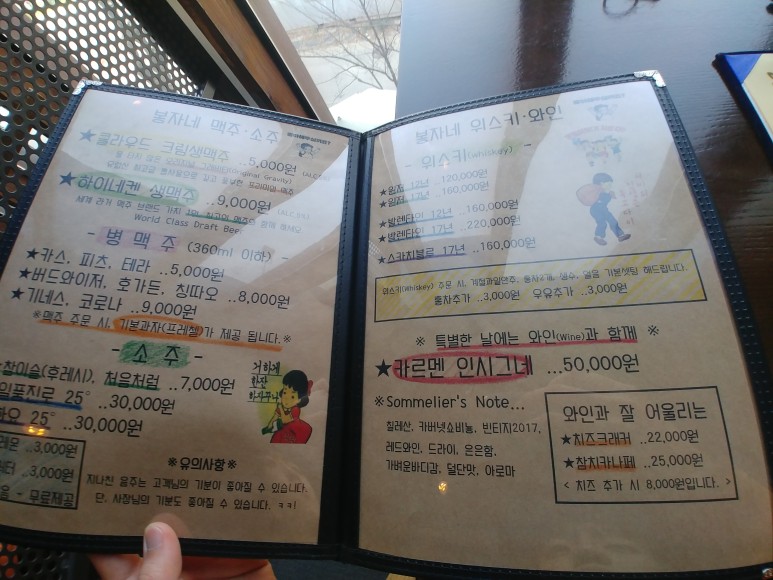 봉자네 맥주·소주
★클라우드 크림생맥주 ..5,000원
★하이네켄 생맥주 ..9,000원
World Class Draft Beer
- 병 맥 주 (360ml 이하) -
★카스, 피츠, 테라 ..5,000원
★버드와이저, 호가든, 칭따오 ..8,000원
★기네스, 코로나 ..9,000원
※맥주 주문 시, 기본과자(프레첼)가 제공 됩니다.※
- 소 주 -
참이슬(후레시), 처음처럼 ..7,000원
일품진로 25° ..30,000원
25° ..30,000원
..3,000원
..3,000원
- 무료제공
※유의사항※
지나친 음주는 고객님의 기분이 좋아질 수 있습니다.
단, 사장님의 기분도 좋아질 수 있습니다. ㅋㅋ!
봉자네 위스키·와인
- 위스키(whiskey) -
★임페 12년 ..120,000원
★임페 17년 ..160,000원
★발렌타인 12년 ..160,000원
★발렌타인 17년 ..220,000원
★스카치블루 17년 ..160,000원
위스키(Whiskey) 주문 시, 계절과일안주, 홍차2개, 생수, 얼음 기본셋팅 해드립니다.
홍차추가 ..3,000원 우유추가 ..3,000원
※ 특별한 날에는 와인(Wine)과 함께 ※
★카르멘 인시그네 ...50,000원
※Sommelier's Note...
칠레산, 카버넷쇼비뇽, 빈티지2017,
레드와인, 드라이, 은은함,
가벼운바디감, 덜단맛, 아로마
와인과 잘 어울리는
★치즈크래커 ..22,000원
★참치카나페 ..25,000원
< 치즈 추가 시 8,000원입니다. >